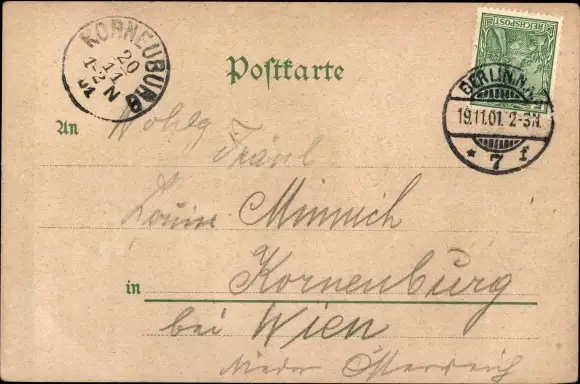 KORNEUBURG
20
11
1-2 N
01
Postkarte
REICHSPOST
BERLIN.N.W
19.11.01. 2-3N.
* 7 f
An Wohlg
Fräul
Louise Minnich
in Korneuburg
bei Wien
Nieder Österreich